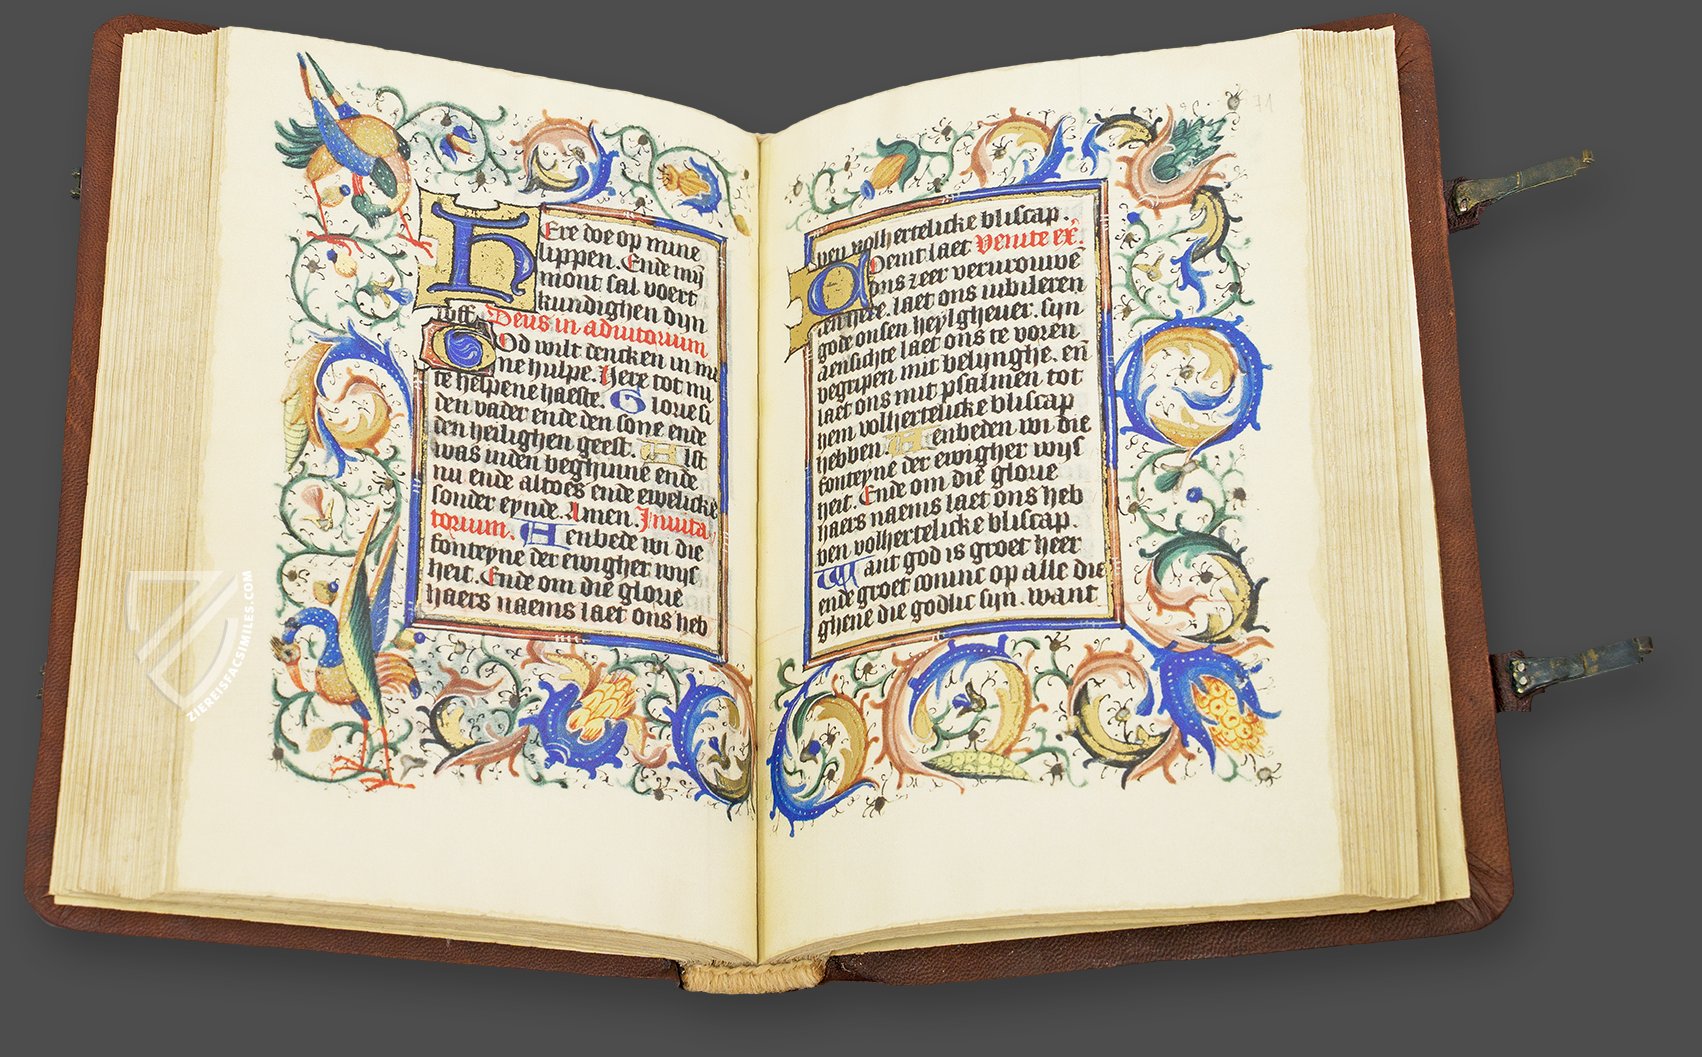 Here doe op mine
lippen. Ende mÿ
mont sal voert
kundighen dÿn
loff. Deus in adiutorium
God wilt dencken in mi
ne hulpe. Here tot mi
te helpene haeste. Glorie si
den vader ende den sone ende
den heilighen geest. Alst
was inden beghinne ende
nu ende altoes ende ewelicke
sonder eynde. Amen. Inuita
torium. Aenbede wi die
fonteyne der ewigher wijs
heit. Ende om die glorie
haers naems laet ons heb
ben volhertelicke bliscap.
Comt laet Venite ex.
ons zeer verurouwe
den here. laet ons iubileren
gode onsen heylgheuer. sijn
aensichte laet ons te voren
begripen mit belijnghe. en̄
laet ons mit psalmen tot
hem volhertelicke bliscap
hebben. Aenbeden wi die
fonteyne der ewigher wijs
heit. Ende om die glorie
haers naems laet ons heb
ben volhertelicke bliscap.
Want god is groet heer
ende groet coninc op alle die
ghene die godlic sijn. want
ZIEREISFACSIMILES.COM